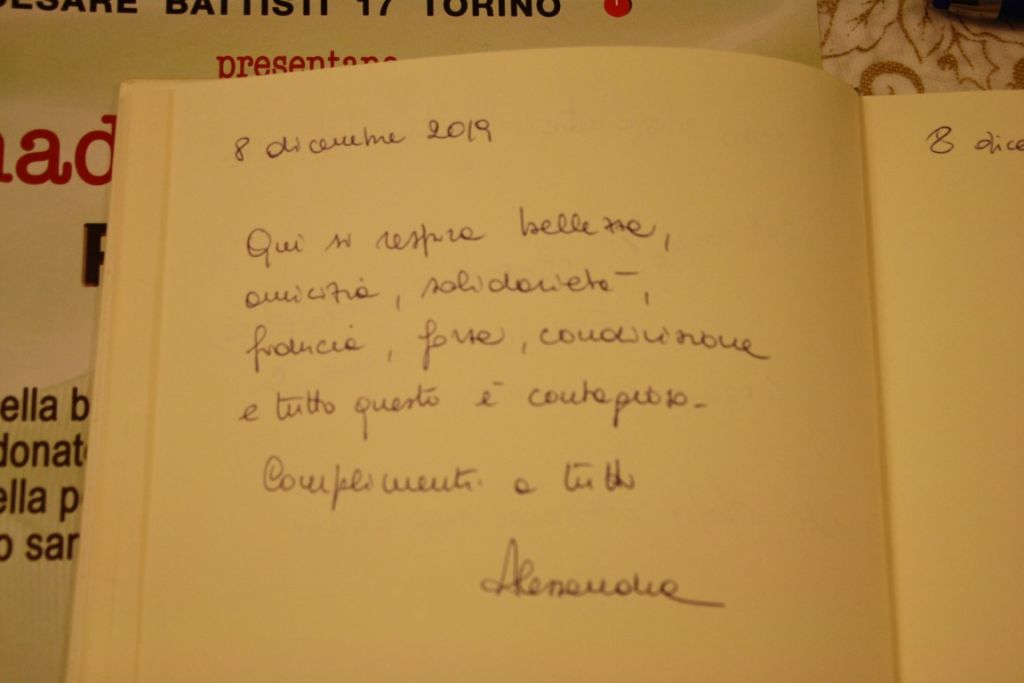 ESARE BATTISTI 17 TORINO
presentano
8 dicembre 2019
8 dice
Qui si respira bellezza,
amicizia, solidarietà,
fiducia, forza, condivisione
e tutto questo è contagioso.
Complimenti a tutti
Alessandra
ella b
donat
ella p
o sar